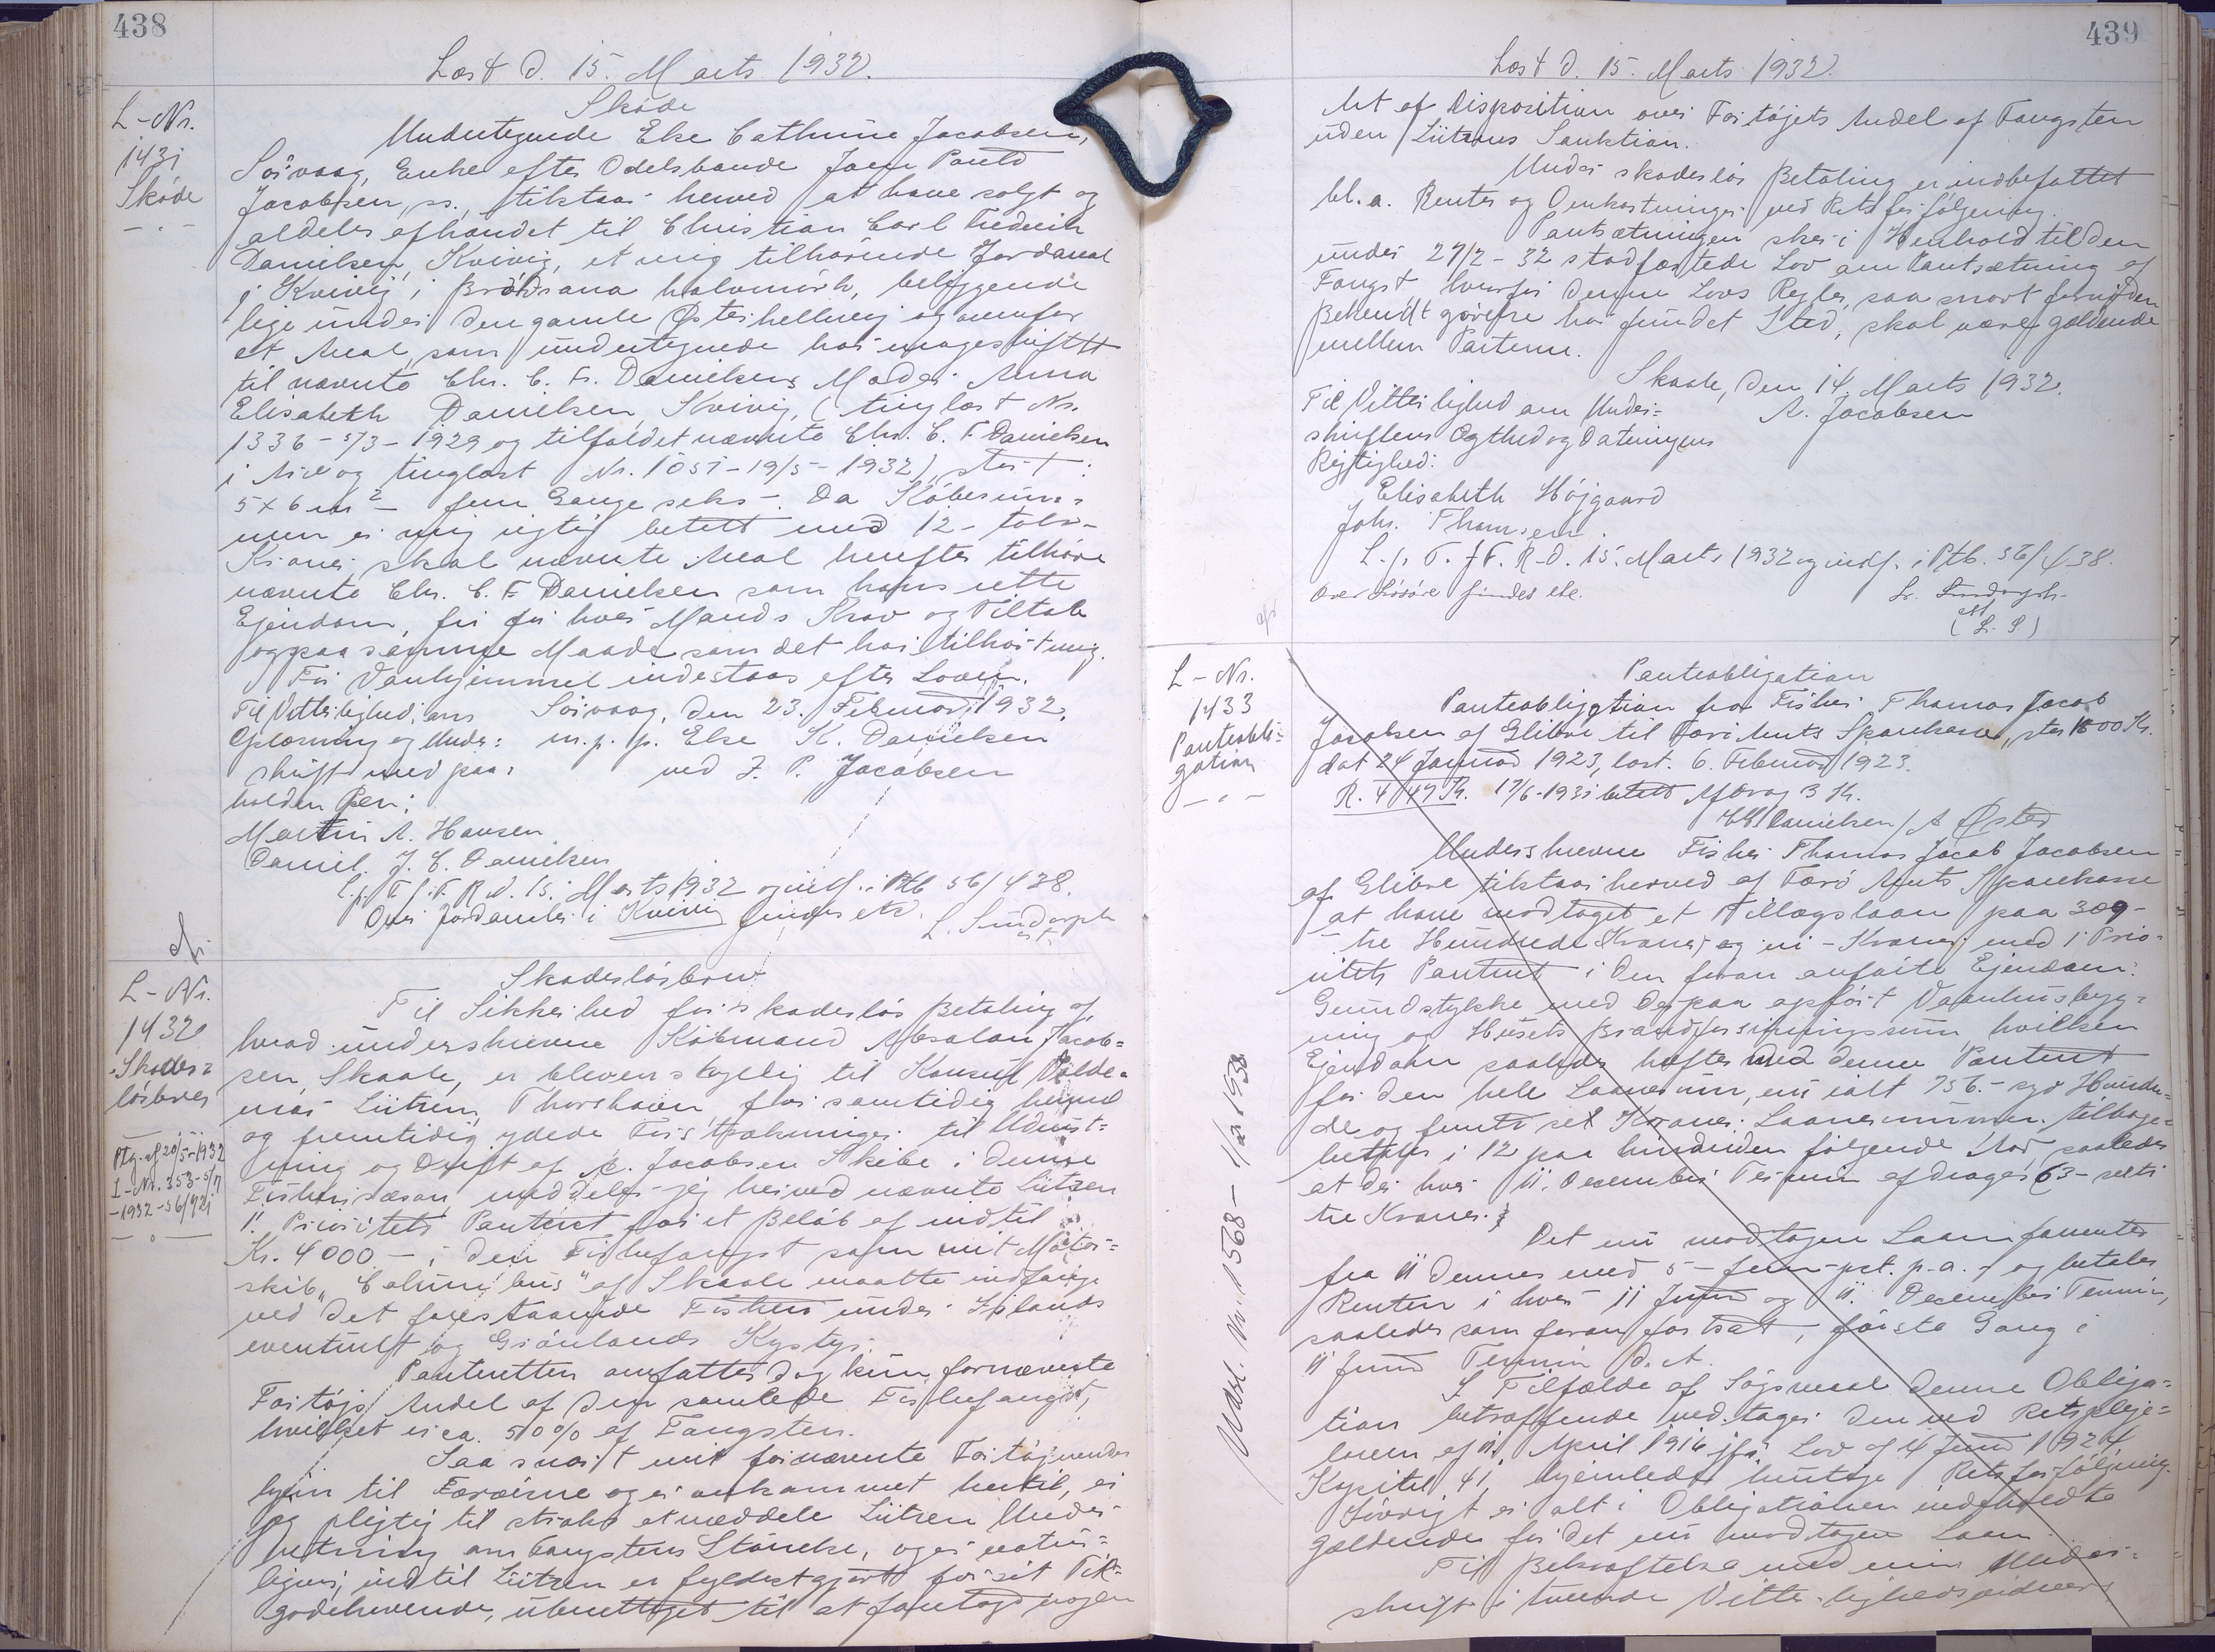 438
Læst d. 15. Marts 1932.
L-Nr.
1431
Skøde
Skøde
Undertegnede Else Cathrine Jacobsen,
Sörvaag, Enke efter Odelsbonde Joen Pauld
Jacobsen, ss., tilstaar herved at have solgt og
aldeles afhændet til Christian Carl Frederik
Danielsen, Kvivig, et mig tilhørende Jordareal
i Kvivig i halvmörk, beliggende
lige under den gamle Østerhelluvej og ovenfor
et Areal, som undertegnede har mageskiftet
til nævnte Chr. C. Fr. Danielsens Moder Anna
Elisabeth Danielsen, Kvivig, (tinglæst Nr.
1336-5/3-1929 og tilfaldet nævnte Chr. C. F. Danielsen
i Arv og tinglæst Nr. 1051-19/5-1932), stort:
5x6 m² - fem Gange seks -. Da Købesum-
men er mig rigtig betalt med 12 - tolv -
Kroner skal nævnte Areal herefter tilhøre
nævnte Chr. C. F. Danielsen som hans rette
Ejendom, fri for hver Mands Krav og Tiltale
og paa samme Maade som det har tilhørt mig.
For Vanhjemmel indestaas efter Loven.
Til Vitterlighed om Sörvaag, den 23. Februar 1932.
Oplæsning og Under= m.p.p. Else K. Danielsen
skrift med paa= ved J. P. Jacobsen
holden Pen:
Martin A. Hansen
Daniel J. C. Danielsen
L.p.T.f.F.R.d. 15. Marts 1932 og indf. i Ptb 56/438.
Over Jordarealer i Kvivig findes etc.
L. Sundorph
cst.
L-Nr.
1432
Skades=
løsbrev
Ptg. af 20/5-1932
L-Nr. 353-5/7
-1932-56/721
Skadesløsbrev
Til Sikkerhed for skadesløs Betaling af,
hvad underskrevne Købmand Absalon Jacob=
sen, Skaale, er bleven skyldig til Konsul Valde=
mar Lützen, Thorshavn, for samtidig hermed
og fremtidig ydede Forstrækninger til Udrust=
ning og Drift af A. Jacobsens Skibe i denne
Fiskerisæson, meddeler jeg herved nævnte Lützen
1' Prioritets Panteret for et Beløb af indtil
Kr. 4000.- i den Fiskefangst som mit Motor=
skib "Columbus" af Skaale maatte indfange
ved det forestaaende Fiskeri under Islands
eventuelt og Grönlands Kyster.
Panteretten omfatter dog kun fornævnte
Fartøjs Andel af den samlede Fiskefangst,
hvilket er ca. 50% af Fangsten.
Saa snart mit fornævnte Fartøj vender
hjem til Færøerne og er ankommet hertil, er
jeg pligtig til straks at meddele Lützen Under=
retning om Fangstens Størrelse, og er natur=
ligvis, indtil Lützen er fyldestgjort for sit Til=
godehavende, uberettiget til at foretage nogen
439
Læst d. 15. Marts 1932.
Art af Disposition over Fartøjets Andel af Fangsten
uden Lützens Sanktion.
Under skadesløs Betaling er indbefattet
bl.a. Renter og Omkostninger ved Retsforfølgning.
Pantsætningen sker i Henhold til den
under 27/2-32 stadfæstede Lov om Pantsætning af
Fangst hvorfor denne Lovs Regler, saa snart fornöden
Bekendtgørelse har fundet Sted, skal være gældende
mellem Parterne.
Skaale, den 14. Marts 1932.
Til Vitterlighed om Under= A. Jacobsen
skriftens Ægthed og Dateringens
Rigtighed:
Elisabeth Højgaard
Johs. Thomsen.
L.p.T.f.F.R.D. 15. Marts 1932 og indf. i Ptb. 56/438.
Over Lösöre findes etc.
L. Sundorph
cst
(L.S)
L-Nr.
1433
Panteobli=
gation
Udsl. Nr. 1568-
Panteobligation
Panteobligation fra Fisker Thomas Jacob
Jacobsen af Glibre til Færö Amts Sparekasse, stor Kr.
dat 24 Januar 1923, læst. 6. Februar 1923.
R. 447 Kr. 17/6-1931 betalt Afdrag 3 Kr.
Danielsen / A Østerø
Underskrevne Fisker Thomas Jacob Jacobsen
af Glibre tilstaar herved af Færö Amts Sparekasse
at have modtaget et Tillægslaan paa 309-
tre Hundrede Kroner og ni - Kroner med 1' Prio-
ritets Panteret i den foran anførte Ejendom:
Grundstykke med derpaa opført Vaanhusbyg=
ning og Husets Brandforsikringssum, hvilken
Ejendom saaledes hæfter med denne Panteret
for den hele Laanesum, nu ialt 756.- syv Hundre=
de og femti seks Kroner. Laanesummen tilbage=
betales i 12 paa hinanden følgende Aar, saaledes
at der hver 11. December Termin afdrages 63 - seksti
tre Kroner.
Det nu modtagne Laan forrentes
fra 11 dennes med 5 - fem - pct. p.a. - og betales
Renten i hver 11 Juni og 11. December Termin,
saaledes som foran fortsat, første Gang i
11 Juni Termin d. A.
I Tilfælde af Søgsmaal denne Obliga=
tion betræffende vedtages den ved Retspleje=
loven af 11. April 1916 jfr. Lov af 4 Juni 1924
Kapitel 41, hjemlede hurtige Retsforfølgning.
Iøvrigt er alt i Obligationen indeholdte
gældende for det nu modtagne Laan.
Til Bekræftelse med min Under=
skrift i tvende Vitterlighedsvidners